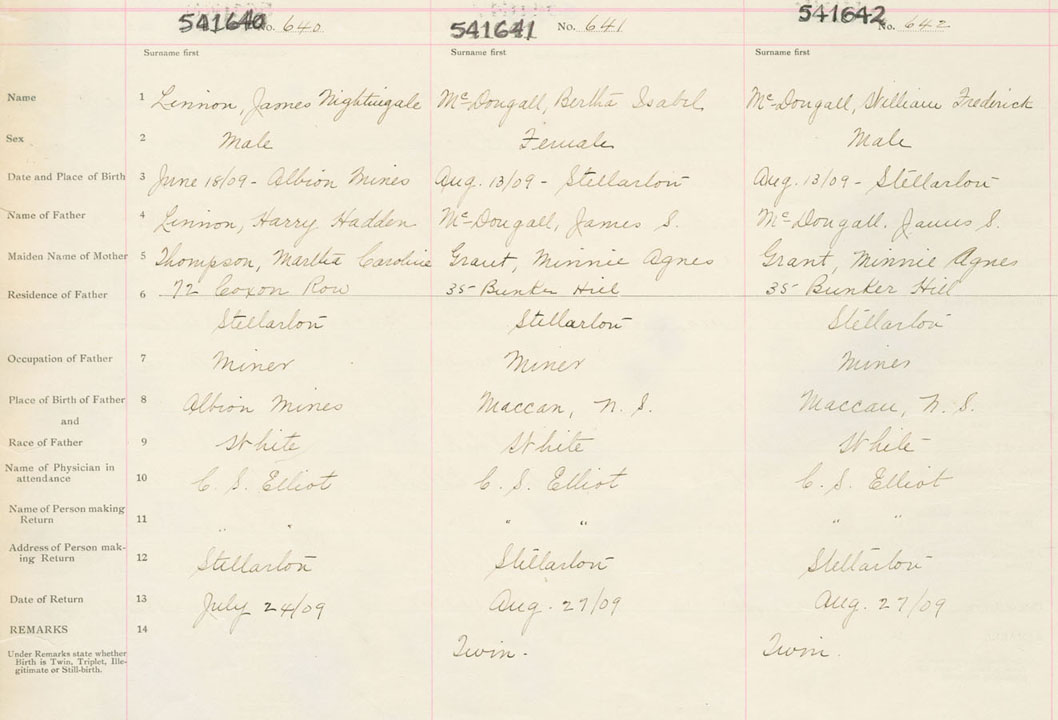 541640 No. 640 541641 No. 641 541642 No. 642
Surname first Surname first Surname first
Name 1 Linnon, James Nightingale McDougall, Bertha Isabel McDougall, William Frederick
Sex 2 Male Female Male
Date and Place of Birth 3 June 18/09 - Albion Mines Aug. 13/09 - Stellarton Aug. 13/09 - Stellarton
Name of Father 4 Linnon, Harry Hadden McDougall, James S. McDougall, James S.
Maiden Name of Mother 5 Thompson, Martha Caroline Grant, Minnie Agnes Grant, Minnie Agnes
Residence of Father 6 72 Coxon Row 35 Bunker Hill 35 Bunker Hill
Stellarton Stellarton Stellarton
Occupation of Father 7 Miner Miner Miner
Place of Birth of Father 8 Albion Mines Maccan, N. S. Maccan, N. S.
and
Race of Father 9 White White White
Name of Physician in
attendance 10 C. S. Elliot C. S. Elliot C. S. Elliot
Name of Person making
Return 11 " " " " " "
Address of Person mak-
ing Return 12 Stellarton Stellarton Stellarton
Date of Return 13 July 24/09 Aug. 27/09 Aug. 27/09
REMARKS 14
Under Remarks state whether Twin. Twin.
Birth is Twin, Triplet, Ille-
gitimate or Still-birth.